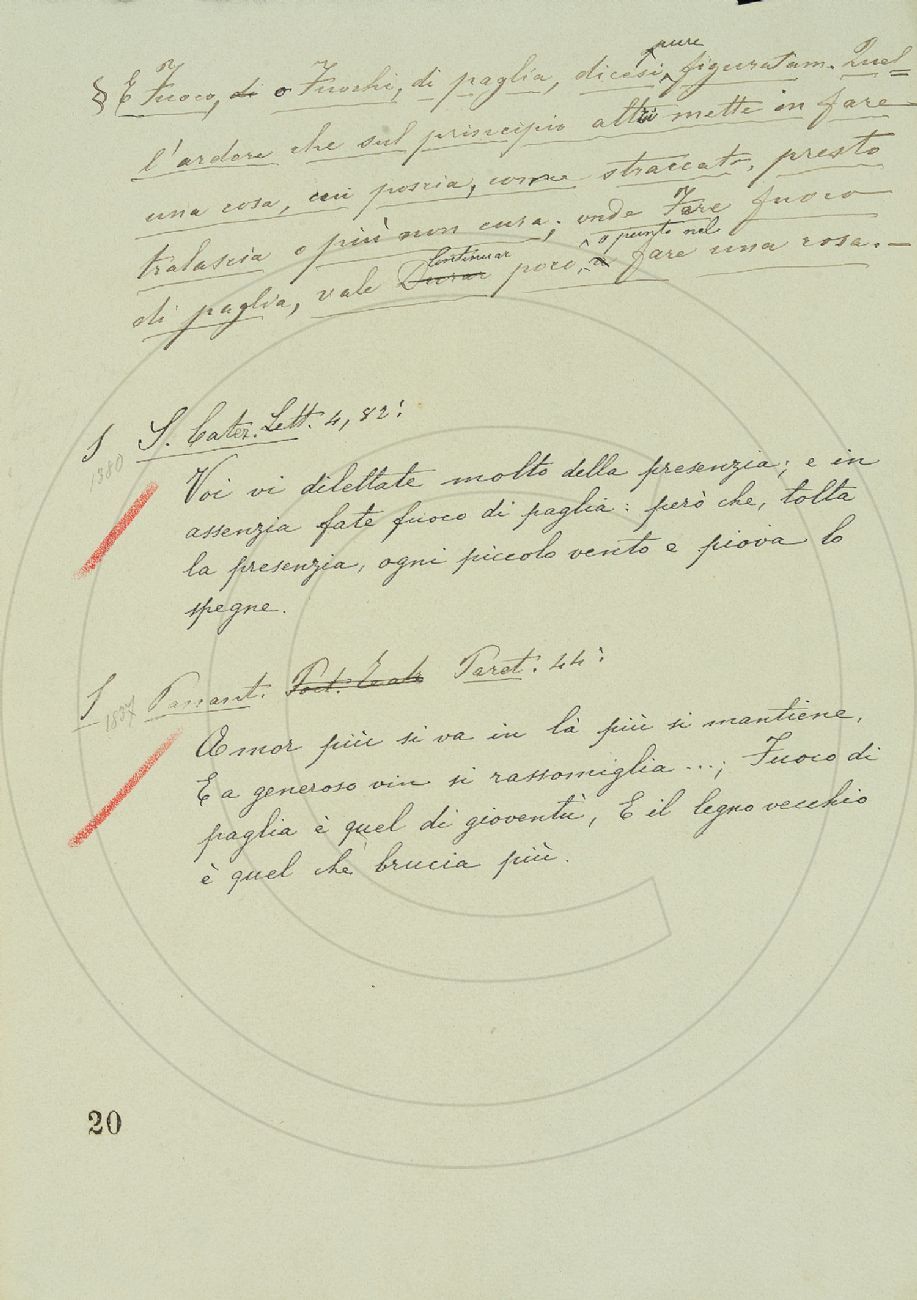 pure
§ E Fuoco, di o Fuochi, di paglia, dicesi figuratam. Quel=
l'ardore che sul principio altri mette in fare
una cosa, cui poscia, come straccato, presto
tralascia o più non cura; onde Fare fuoco
Continuar o punto nel
di paglia, vale Durar poco, a fare una cosa.—
S S. Cater. Lett. 4, 82:
1380
Voi vi dilettate molto della presenzia; e in
assenzia fate fuoco di paglia: però che, tolta
la presenzia, ogni piccolo vento e piova lo
spegne.
S Pananti. Poet. Teatr. Paret. 44:
1837
Amor più si va in là più si mantiene,
E a generoso vin si rassomiglia ...; Fuoco di
paglia è quel di gioventù, E il legno vecchio
è quel che brucia più.
20